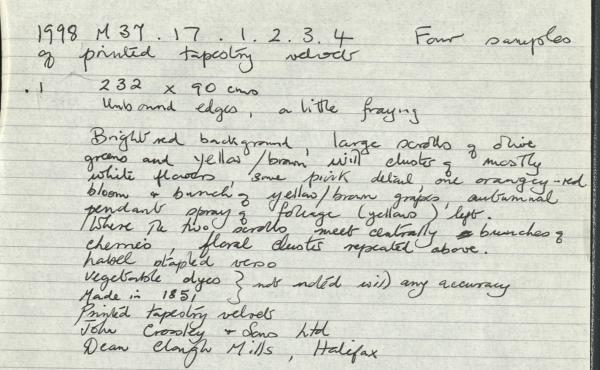 1998 M37.17.1.2.3.4 Four samples
of printed tapestry velvets
.1 232 x 90 cms
Unbound edges, a little fraying
Bright red background, large scrolls of olive
greens and yellow/brown with cluster of mostly
white flowers, some pink detail, one orangey-red
bloom & bunch of yellow/brown grapes, autumnal
pendant spray of foliage (yellows) left.
Where the two scrolls meet centrally bunches of
cherries, floral cluster repeated above.
Label stapled verso
Vegetable dyes } not noted with any accuracy
Made in 1851
Printed tapestry velvets
John Crossley & Sons Ltd
Dean Clough Mills, Halifax